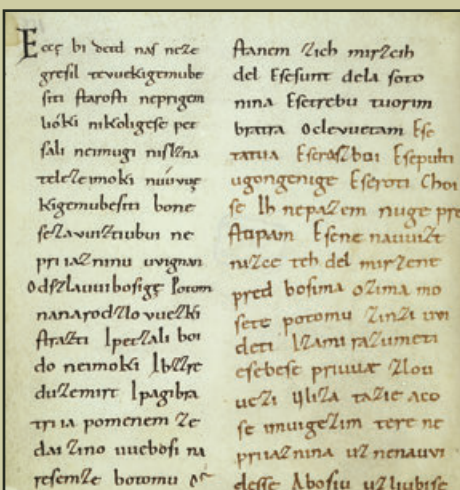 Ecce bi detd naſ neze
greſil tevuekigemube
ſiti ſtaroſti neprigem
lióki nikoligeſe pet
ſali neimugi niſlzna
telezeimoki nuúvuę
kigemubeſiti bone
ſezavuiztiubui ne
priiazninu uvignan
Odſzlauuiboſigę Potom
nanarodzlo vuezki
ſtrazti Ipetzali boi
do neimoki Ibzzre
duzemirt Ipagibra
triia pomenem ze
dai zino uueboſi na
reſemze botomu
ſtanem zich mirzcih
del Eſeſunt dela ſoto
nina Eſetrebu tuorim
bratra Oclevuetam Eſe
tatua Eſerazboi Eſepulti
ugongenige Eſeroti Choi
ſe Ih nepazem nuge pre
ſtopam Eſene nauuizt
nizce teh del mirzene
pred boſima ozima mo
ſete potomu zinzi uvi
deti Izami razumeti
eſebeſe priuuæ zlou
uezi Uliza tazie aco
ſe imuigezim tere ne
priiaznina uznenauvi
deſſe Aboſiu uzliubiſe